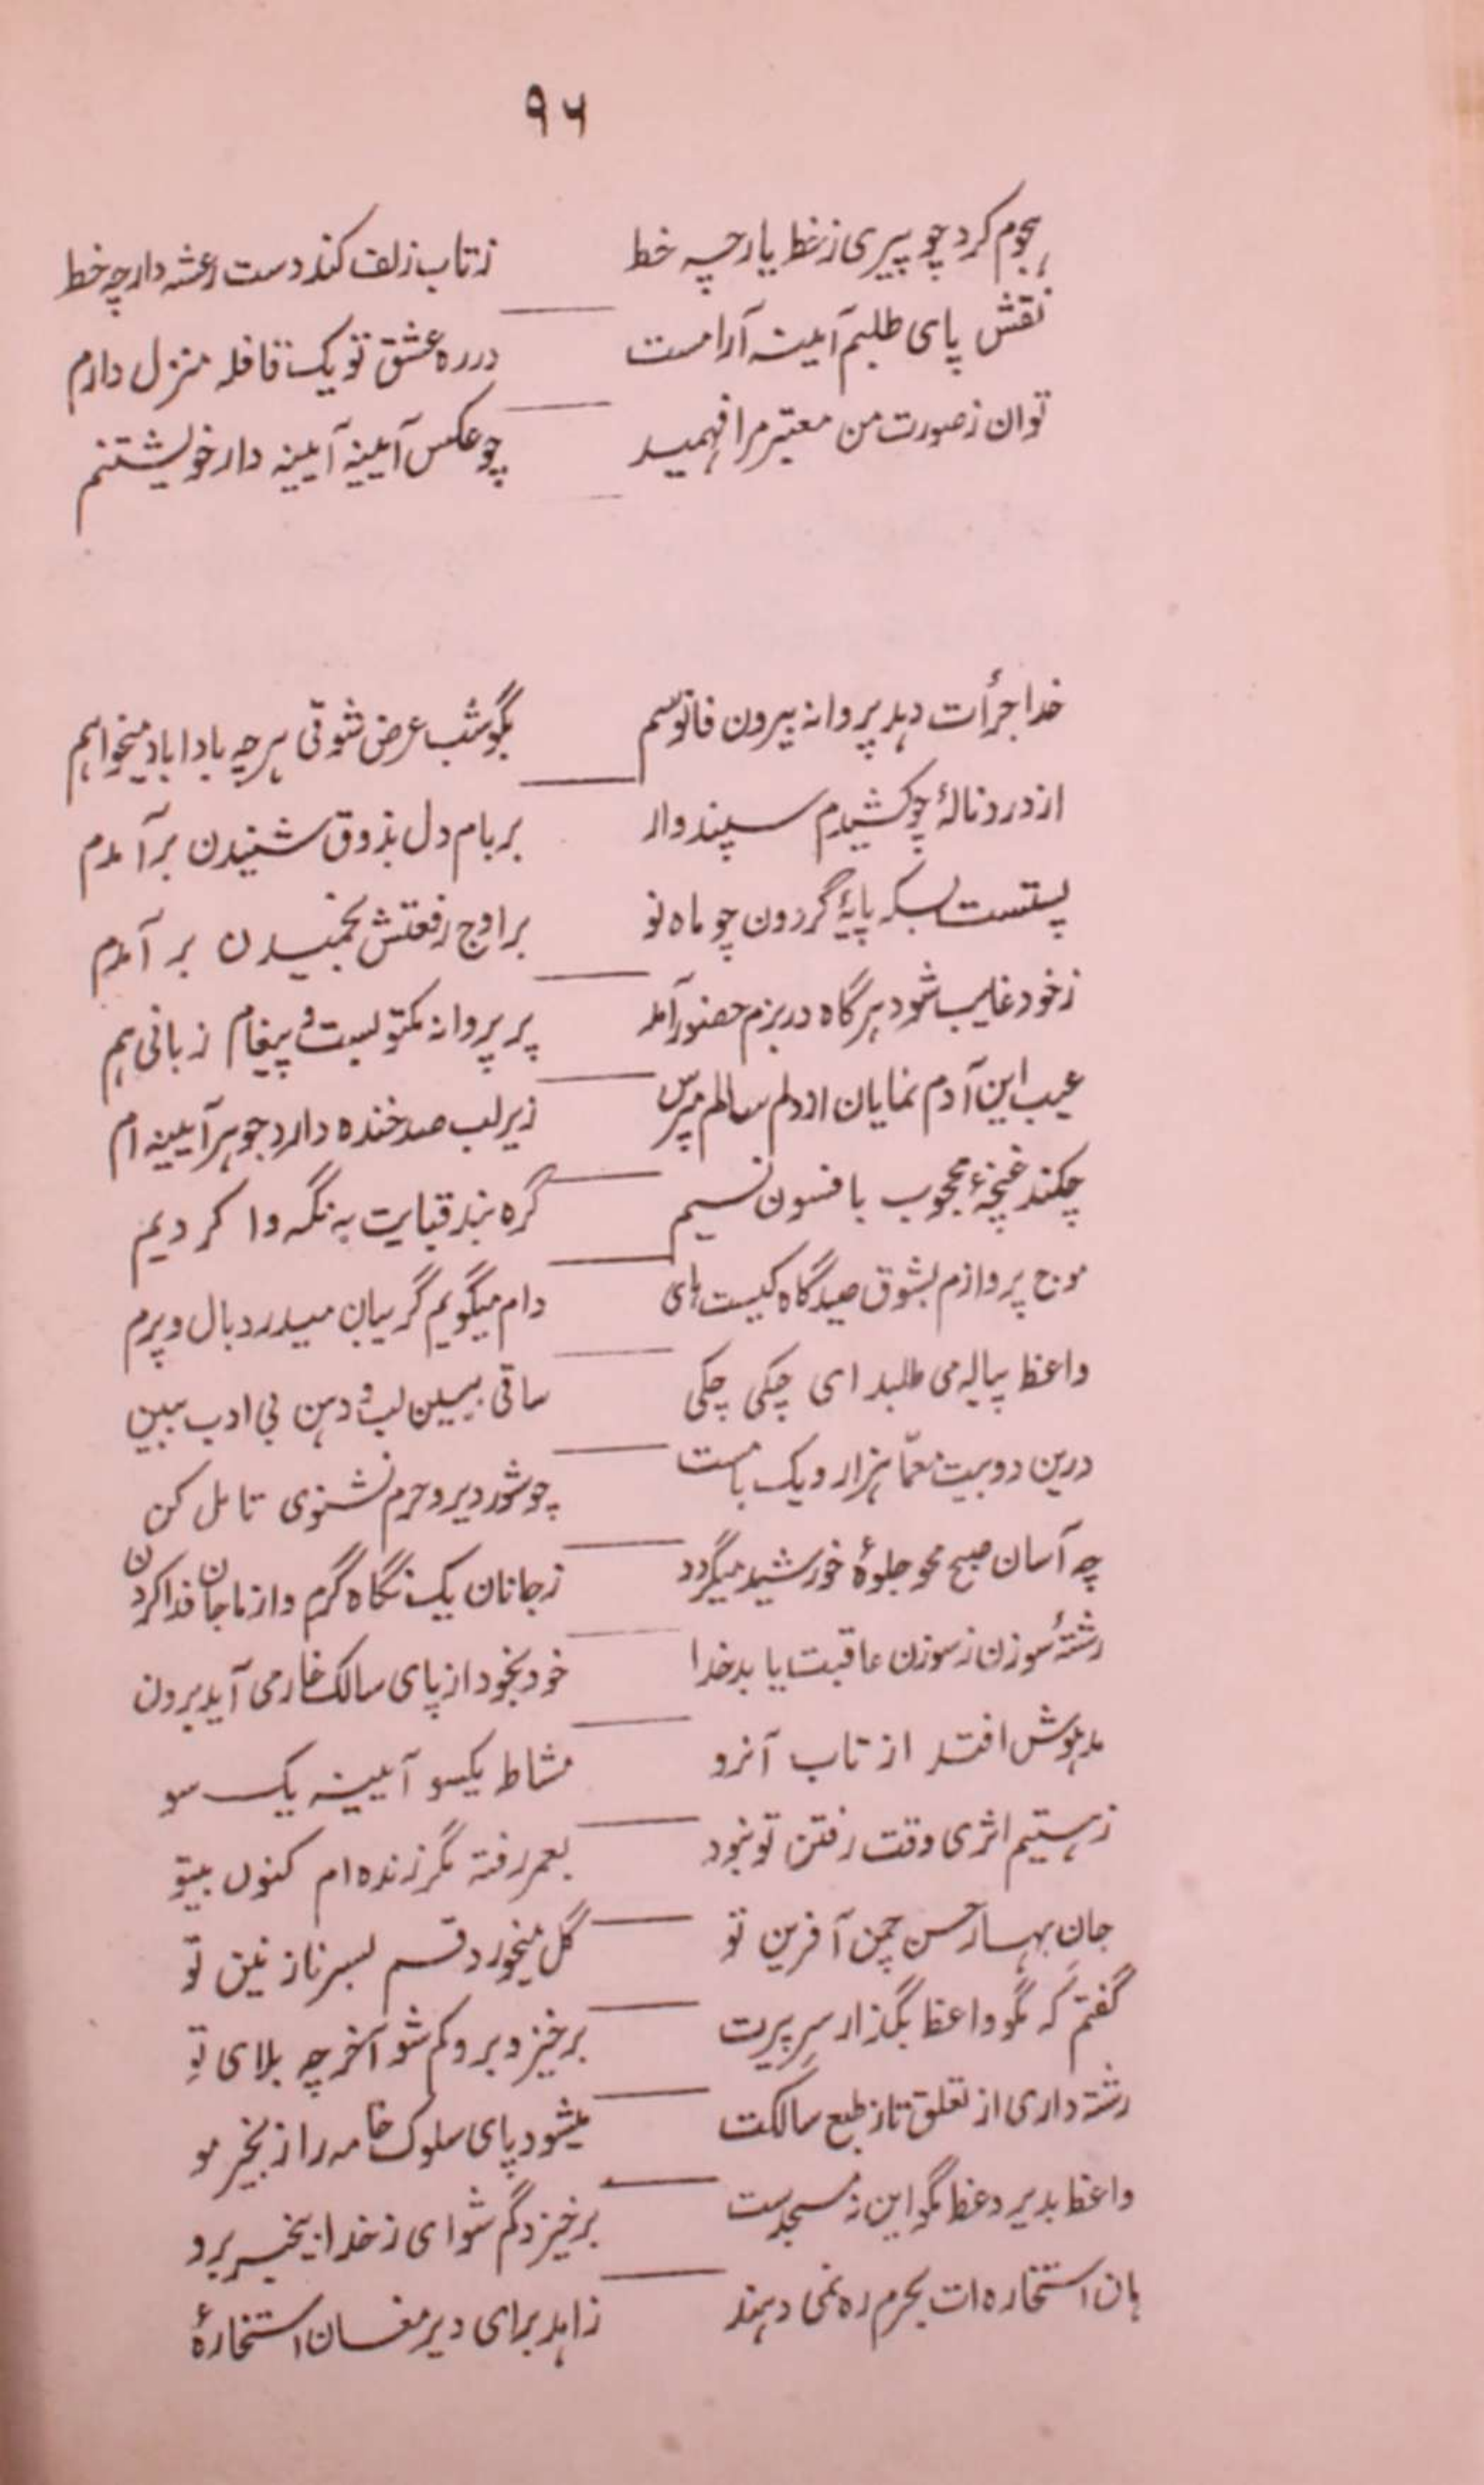 ۹۶
ہجوم کرد چو پیری ز خط یار چہ خط زتاب زلف کند دست رعشہ دار چہ خط
نقش پای طلبم آئینہ آرامست در رہ عشق تو یک قافلہ منزل دارم
توان ز صورت من معتبر مرا فہمید چو عکس آیینہ آیینہ دار خویشتنم
خدا جرأت دہد پروانہ بیرون فانوسم بگو شب عرض شوقی ہرچہ بادا باد میخواہم
از درد نالۂ چو کشیدم سپند وار بر بام دل بذوق شنیدن برآمدم
پستست بسکہ پایۂ گردون چو ماہ نو بر اوج رفعتش بخمیدن بر آمدم
ز خود غایب شود ہر گاہ در بزم حضور آمد پر پروانہ مکتوبست و پیغام زبانی ہم
عیب این آدم نمایان از دلم سالم مپرس زیر لب صد خندہ دارد جوہر آیینہ ام
چکند غنچۂ محجوب با فسون نسیم گرہ بند قبایت بہ نگہ وا کردیم
موج پروازم بشوق صیدگاہ کیست ہای دام میگویم گریبان میدرد بال و پرم
واعظ پیالہ می طلبد ای چکی چکی ساقی ببین لب و دہن بی ادب ببین
درین دو بیت معمّا ہزار و یک بامست چو شور دیر و حرم نشنوی تامل کن
چہ آسان صبح محو جلوۂ خورشید میگردد ز جانان یک نگاہ گرم و از ما جان فدا کردن
رشتۂ سوزن ز سوزن عاقبت یابد خدا خود بخود از پای سالک خار می آید برون
مدہوش افتد از تاب آنرو مشاط یکسو آیینہ یک سو
ز ہستیم اثری وقت رفتن تو نبود بعمر رفتہ مگر زندہ ام کنون بیتو
جانِ بہار حسن چمن آفرین تو گل میخورد قسم بسر نازنین تو
گفتم کہ مگو واعظ بگذار سرِ پیرت برخیز و برو کم شو آخر چہ بلای توِ
رشتہ داری از تعلق تاز طبع سالکت میشود پای سلوک خامہ را زنجیر مو
واعظ بدیر وعظ مگو این نہ مسجدست برخیز و گم شو ای ز خدا بیخبر برو
ہان استخارہ ات بحرم رہ نمی دہند زاہد برای دیر مغان استخارۂ